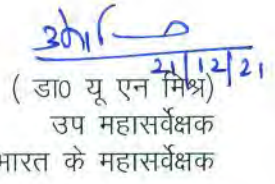 21/12/21
( डा0 यू एन मिश्र)
उप महासर्वेक्षक
भारत के महासर्वेक्षक